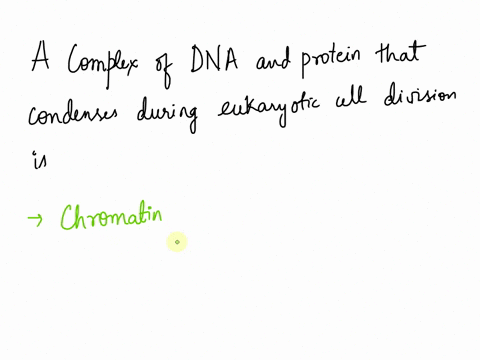 A Complex of DNA and protein that
condenses during eukaryotic cell division
is
→ Chromatin